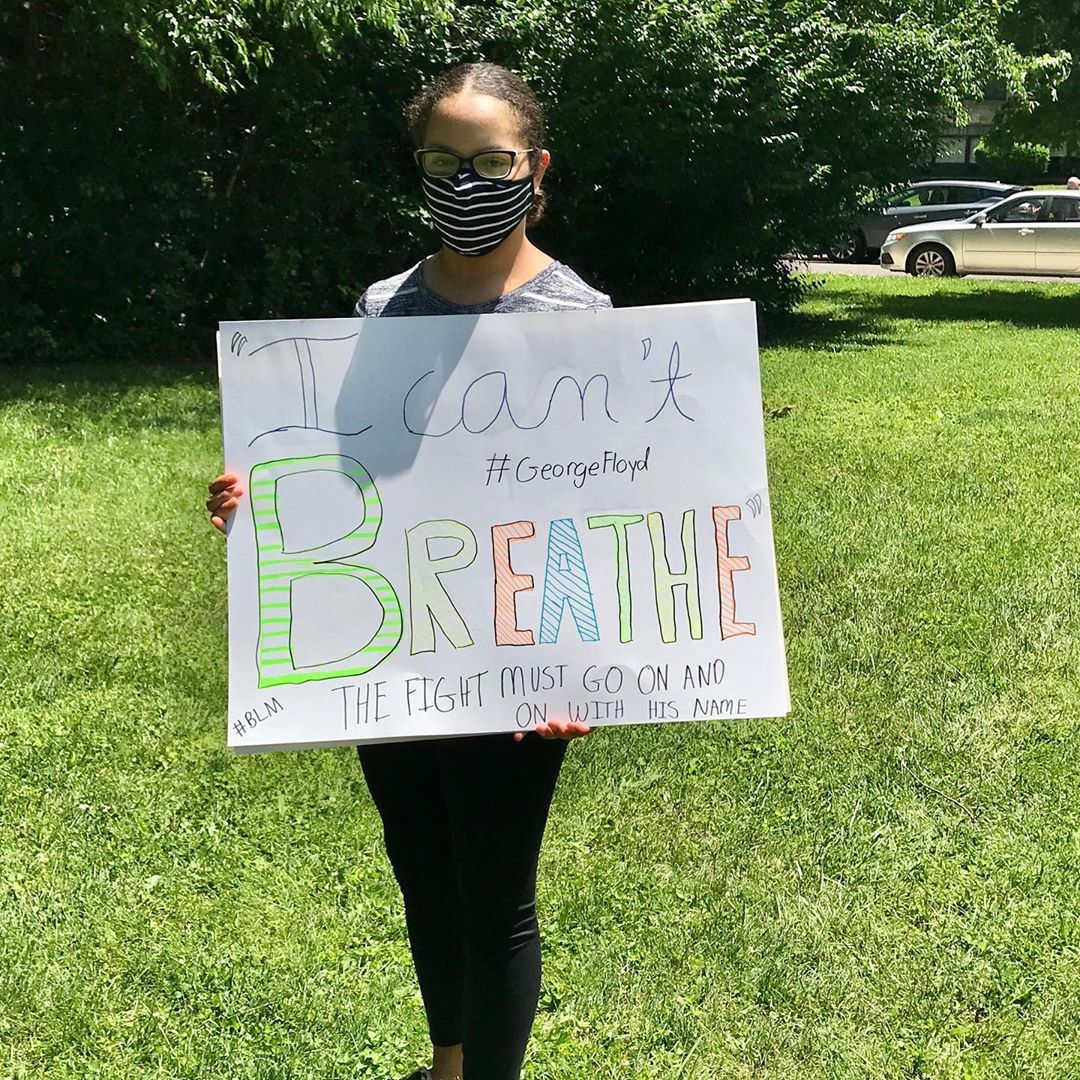 "I can't
#GeorgeFloyd
BREATHE"
THE FIGHT MUST GO ON AND
ON WITH HIS NAME
#BLM